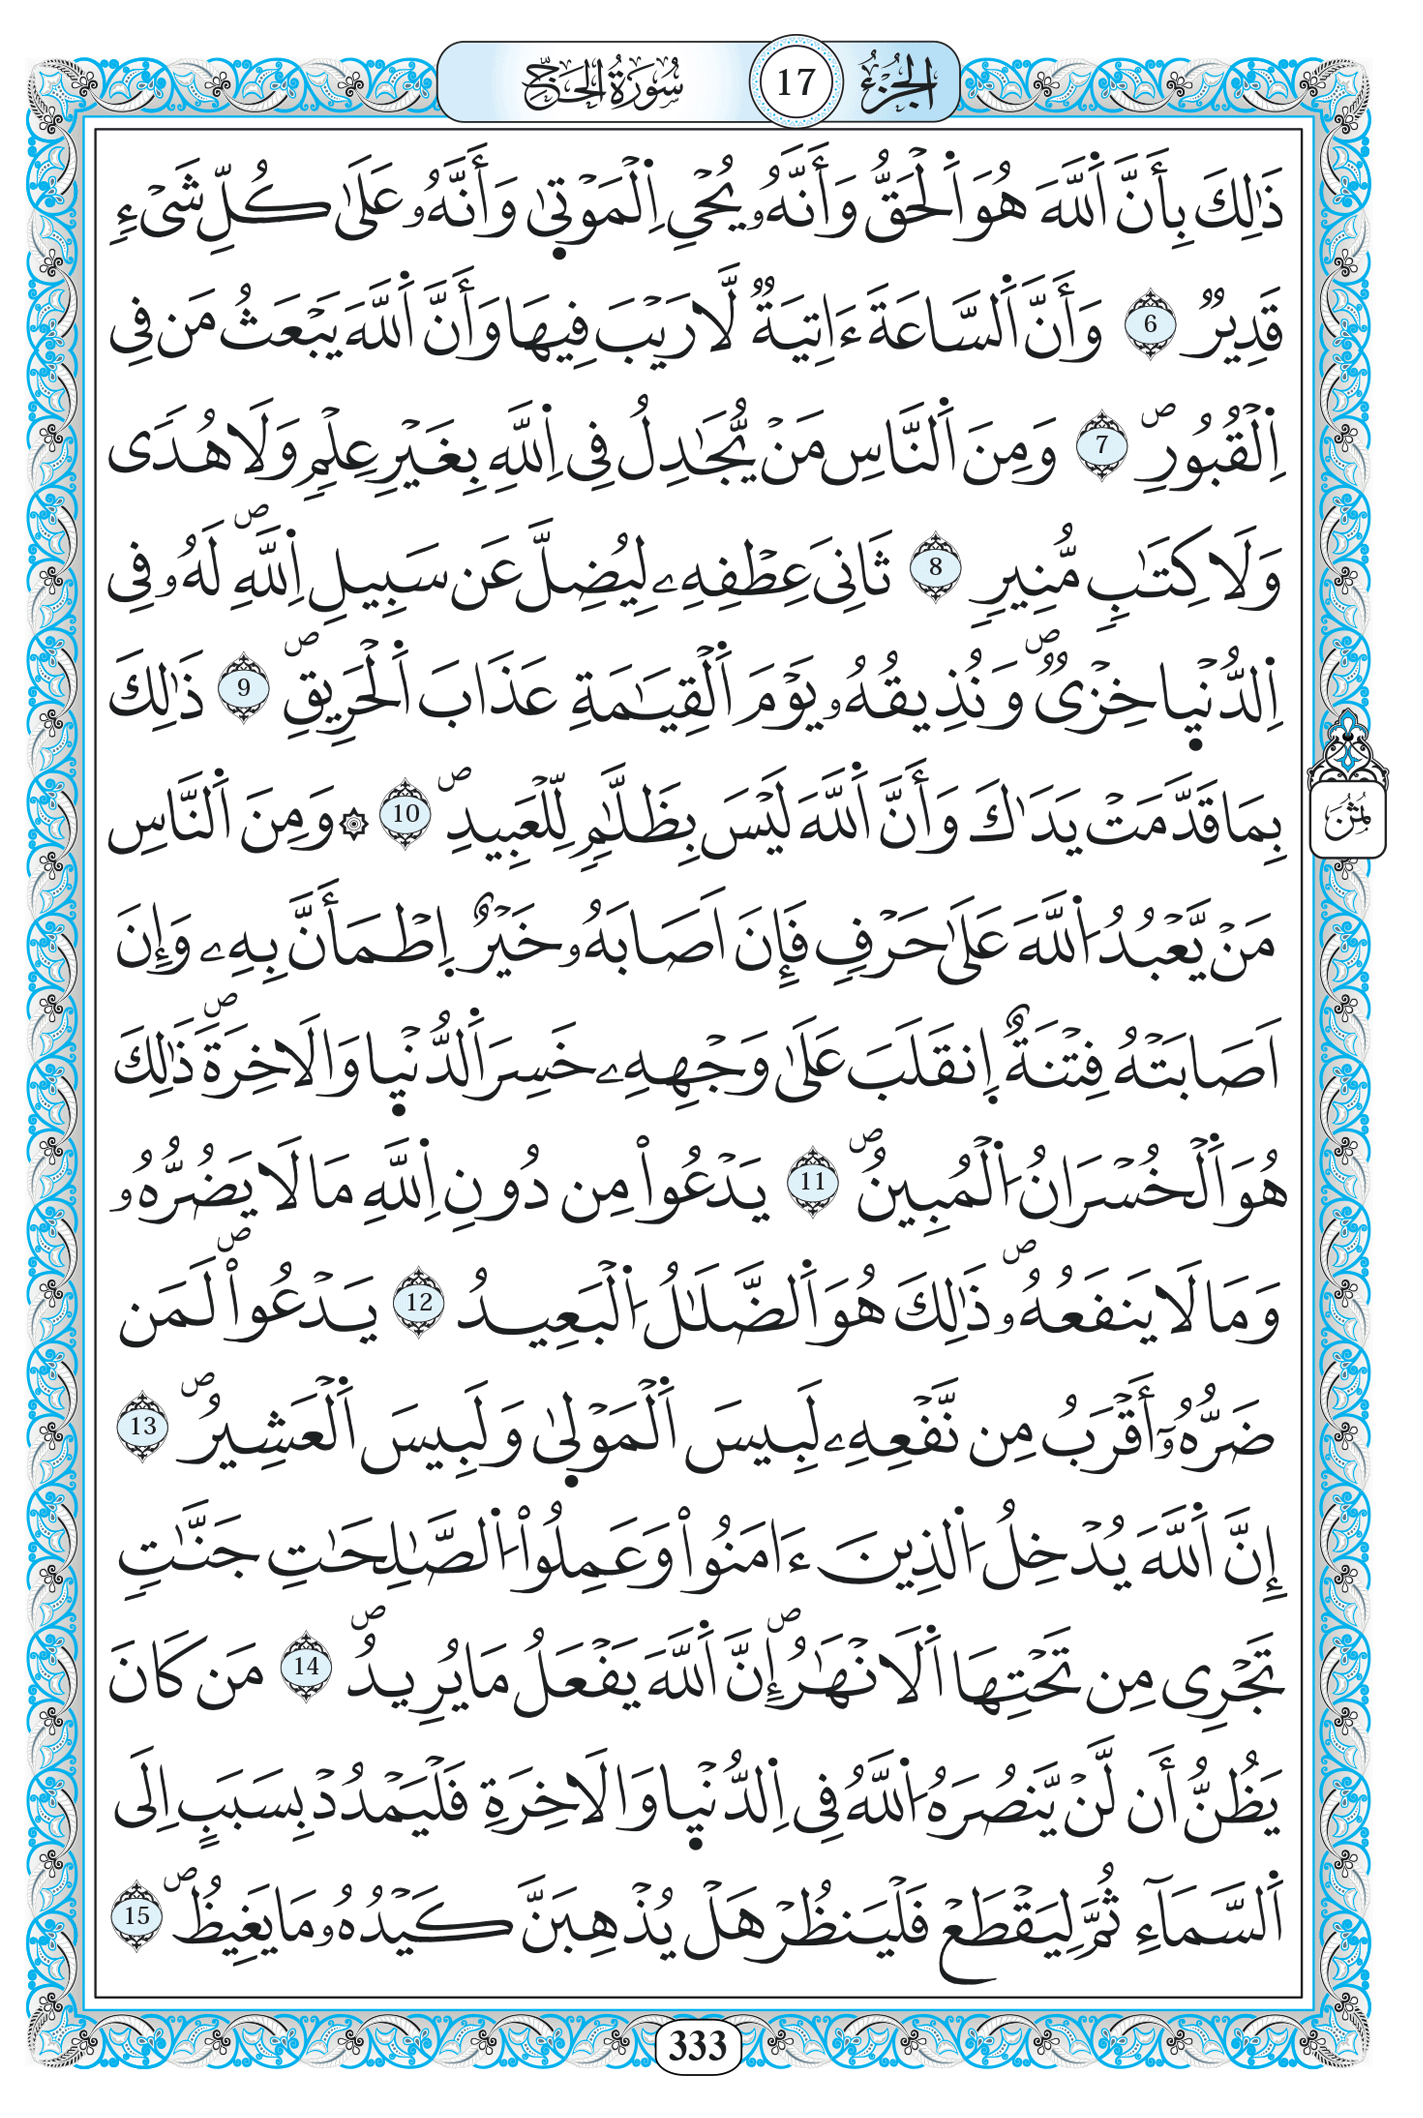 الجزء 17 سورة الحج
ذَٰلِكَ بِأَنَّ اَ۬للَّهَ هُوَ اَ۬لْحَقُّ وَأَنَّهُۥ يُحْيِ اِ۬لْمَوْت۪ىٰ وَأَنَّهُۥ عَلَىٰ كُلِّ شَيْءٖ
قَدِيرٞ 6 وَأَنَّ اَ۬لسَّاعَةَ ءَاتِيَةٞ لَّا رَيْبَ فِيهَا وَأَنَّ اَ۬للَّهَ يَبْعَثُ مَن فِي
اِ۬لْقُبُورِۖ 7 وَمِنَ اَ۬لنَّاسِ مَنْ يُّجَٰدِلُ فِي اِ۬للَّهِ بِغَيْرِ عِلْمٖ وَلَا هُدىٗ
وَلَا كِتَٰبٖ مُّنِيرٖ 8 ثَانِيَ عِطْفِهِۦ لِيُضِلَّ عَن سَبِيلِ اِ۬للَّهِۖ لَهُۥ فِي
اِ۬لدُّنْي۪ا خِزْيٞۖ وَنُذِيقُهُۥ يَوْمَ اَ۬لْقِيَٰمَةِ عَذَابَ اَ۬لْحَرِيقِۖ 9 ذَٰلِكَ
بِمَا قَدَّمَتْ يَدَٰكَ وَأَنَّ اَ۬للَّهَ لَيْسَ بِظَلَّٰمٖ لِّلْعَبِيدِۖ 10 ۞ وَمِنَ اَ۬لنَّاسِ
مَنْ يَّعْبُدُ اُ۬للَّهَ عَلَىٰ حَرْفٖ فَإِنَ اَصَابَهُۥ خَيْرٌ اِ۪طْمَأَنَّ بِهِۦ وَإِنَ
اَصَابَتْهُ فِتْنَةٌ اِ۪نقَلَبَ عَلَىٰ وَجْهِهِۦ خَسِرَ اَ۬لدُّنْي۪ا وَالَاخِرَةَۖ ذَٰلِكَ
هُوَ اَ۬لْخُسْرَانُ اُ۬لْمُبِينُۖ 11 يَدْعُواْ مِن دُونِ اِ۬للَّهِ مَا لَا يَضُرُّهُۥ
وَمَا لَا يَنفَعُهُۥۖ ذَٰلِكَ هُوَ اَ۬لضَّلَٰلُ اُ۬لْبَعِيدُ 12 يَدْعُواْۖ لَمَن
ضَرُّهُۥٓ أَقْرَبُ مِن نَّفْعِهِۦ لَبِيسَ اَ۬لْمَوْل۪ىٰ وَلَبِيسَ اَ۬لْعَشِيرُۖ 13
إِنَّ اَ۬للَّهَ يُدْخِلُ اُ۬لذِينَ ءَامَنُواْ وَعَمِلُواْ اُ۬لصَّٰلِحَٰتِ جَنَّٰتٖ
تَجْرِي مِن تَحْتِهَا اَ۬لَانْهَٰرُۖ إِنَّ اَ۬للَّهَ يَفْعَلُ مَا يُرِيدُۖ 14 مَن كَانَ
يَظُنُّ أَن لَّنْ يَّنصُرَهُ اُ۬للَّهُ فِي اِ۬لدُّنْي۪ا وَالَاخِرَةِ فَلْيَمْدُدْ بِسَبَبٍ اِلَى
اَ۬لسَّمَآءِ ثُمَّ لِيَقْطَعْ فَلْيَنظُرْ هَلْ يُذْهِبَنَّ كَيْدُهُۥ مَا يَغِيظُۖ 15
ثمن
333